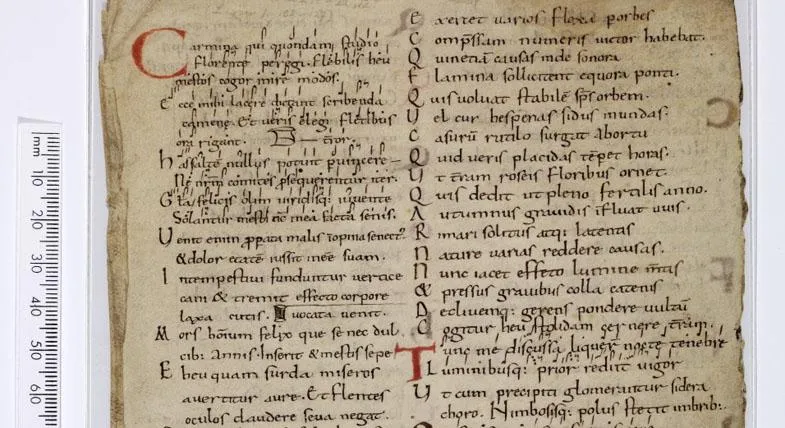 Carmina qui quondam studio
florente peregi. Flebilis heu
mestos cogor inire modos.
Ecce mihi lacere dictant scribenda
camene. Et ueris elegi fletibus
ora rigant.
has saltē nullus potuit puincere
Ne nr̄m comites ꝓsequerentur iter.
Gľa felicis olim uiridisq: iuuente
Solantur mesti nc̄ mea facta senis.
Uenit enim ꝓpata malis īopina senect᷒
& dolor etatē iussit inee suam.
Intempestiui funduntur uertice
cani & tremit effecto corpore
laxa cutis.
Mors hom̄um felix que se nec dul
cib: Annis. Inserit & mestis sepe
Eheu quam surda miseros
auertitur aure. Et flentes
oculos claudere seua negat.
Exercet uarios flexa ꝑ orbes
Comp̄ssam numeris uictor habebat.
Quinetiā causas unde sonora
Flamina sollicitent equora ponti.
Quis uoluat stabilē sp̄s orbem.
Uel cur hesperias sidus in undas.
Casurū rutilo surgat ab ortu
Quid ueris placidas tēpet horas.
Ut t̄ram roseis floribus ornet.
Quis dedit ut pleno fertilis anno.
Autumnus grauidis īfluat uuis.
Rimari solitus atq: latentis
Nature uarias reddere causas.
Nunc iacet effeto lumine m̄tis
& pressus grauibus colla catenis
Decliuemq: gerens pondere uultū
Cogitur heu stolidam cernere t̄ram.
Tunc me discussa liquer̄ nocte tenebre
Luminibusq: prior rediit uigor
Ut cum precipiti glomerantur sidera
choro. Nimbosisq: polus stetit imbrib:.
mm 10 20 30 40 50 60